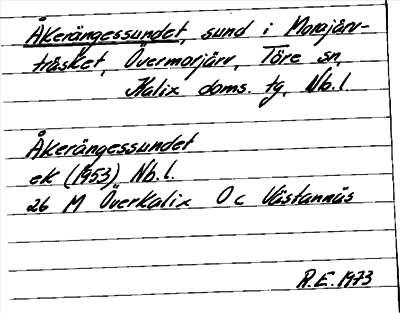 Åkerängessundet, sund i Morajärv-
träsket, Övermorjärv, Töre sn,
Kalix doms. tg, Nb. l.
Åkerängessundet
ek (1953) Nb. l.
26 M Överkalix O c Västannäs
R.E. 1973